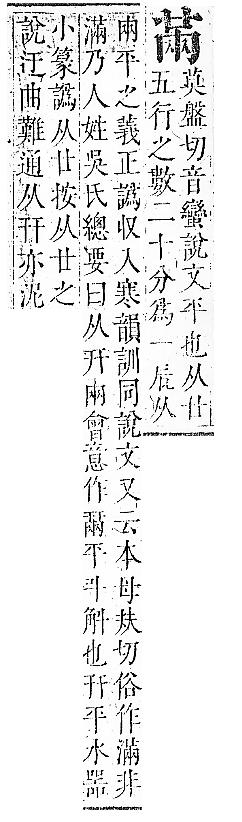 㒼
莫盤切音蠻說文平也从廿
五行之數二十分爲一辰从
㒳平之義正譌收入寒韻訓同說文又云本母朕切俗作滿非
滿乃人姓吳氏總要曰从幵㒳會意作㒼平斗斛也幵平水器
小篆譌从廿按从廿之
說汪曲難通从幵亦泥